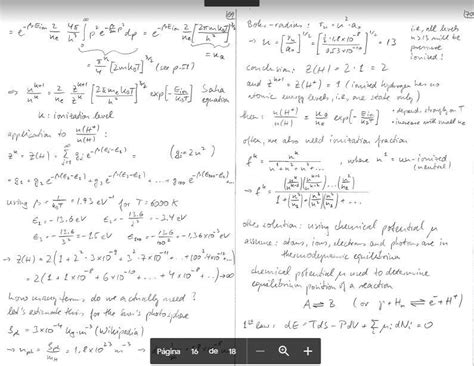 = e^{-βE_{im}} 2/n_e 4π/h³ ∫_0^∞ p² e^{-β p²/2m} dp = e^{-βE_{im}} 2/n_e [2πm k_B T/h²]^{3/2}
= π^{1/2}/4 [2m k_B T]^{3/2} (see p.51)
⇒ n^{k+1}/n^k = 2/n_e z^{k+1}/z^k [2πm_e k_B T/h²]^{3/2} exp[-E_{im}/k_B T] Saha equation
k: ionization level
application to n(H⁺)/n(H):
z^k = z(H) = Σ g_i e^{-β(E_i-E_1)} (g_i = 2n²)
= g_1 + g_2 e^{-β(E_2-E_1)} + g_3 e^{-β(E_3-E_1)} + ... + g_{100} e^{-β(E_{100}-E_1)}
using β = 1/k_BT = 1.93 eV⁻¹ for T = 6000 K
E_1 = -13.6 eV E_2 = -13.6/2² = -3.4 eV
E_3 = -13.6/3² = -1.5 eV E_{100} = -13.6/100² = -1.36×10⁻³ eV
→ Z(H) = 2(1 + 2²·3×10⁻⁹ + 3²·7×10⁻¹¹ + ... + 100²·4×10⁻¹² ...
= 2(1 + 1×10⁻⁸ + 6×10⁻¹⁰ + ... + 4×10⁻⁸ + ...) → ∞
how many terms do we actually need?
let's estimate this for the Sun's photosphere
= 3×10⁻⁴ kg·m⁻³ (Wikipedia)
= 1.8×10²³ m⁻³
Bohr-radius: r_n = n² a_0
i.e., all levels
n ≥ 13 will be
pressure
ionized!
= 13
conclusion: Z(H) = 2·1 = 2
and z^{k+1} = z(H⁺) = 1 (ionized hydrogen has no
atomic energy levels, i.e., one state only)
then: n(H⁺)/n(H) = exp[-E_{im}/k_BT]
depend. strongly on T
increase with small n_e
often, we also need ionization fraction
f^k = n^k/(n¹+n²+n³+...), where n° = un-ionized
(neutral)
→ f^k =
other solution: using chemical potential μ
assume: atoms, ions, electrons and photons are in
thermodynamic equilibrium
chemical potential μ used to determine
equilibrium position of a reaction
A ⇌ B (or γ + H_n ⇌ e⁻ + H⁺)
1st law: dE = TdS - PdV + Σ μ_i dN_i = 0
Página 16 de 18